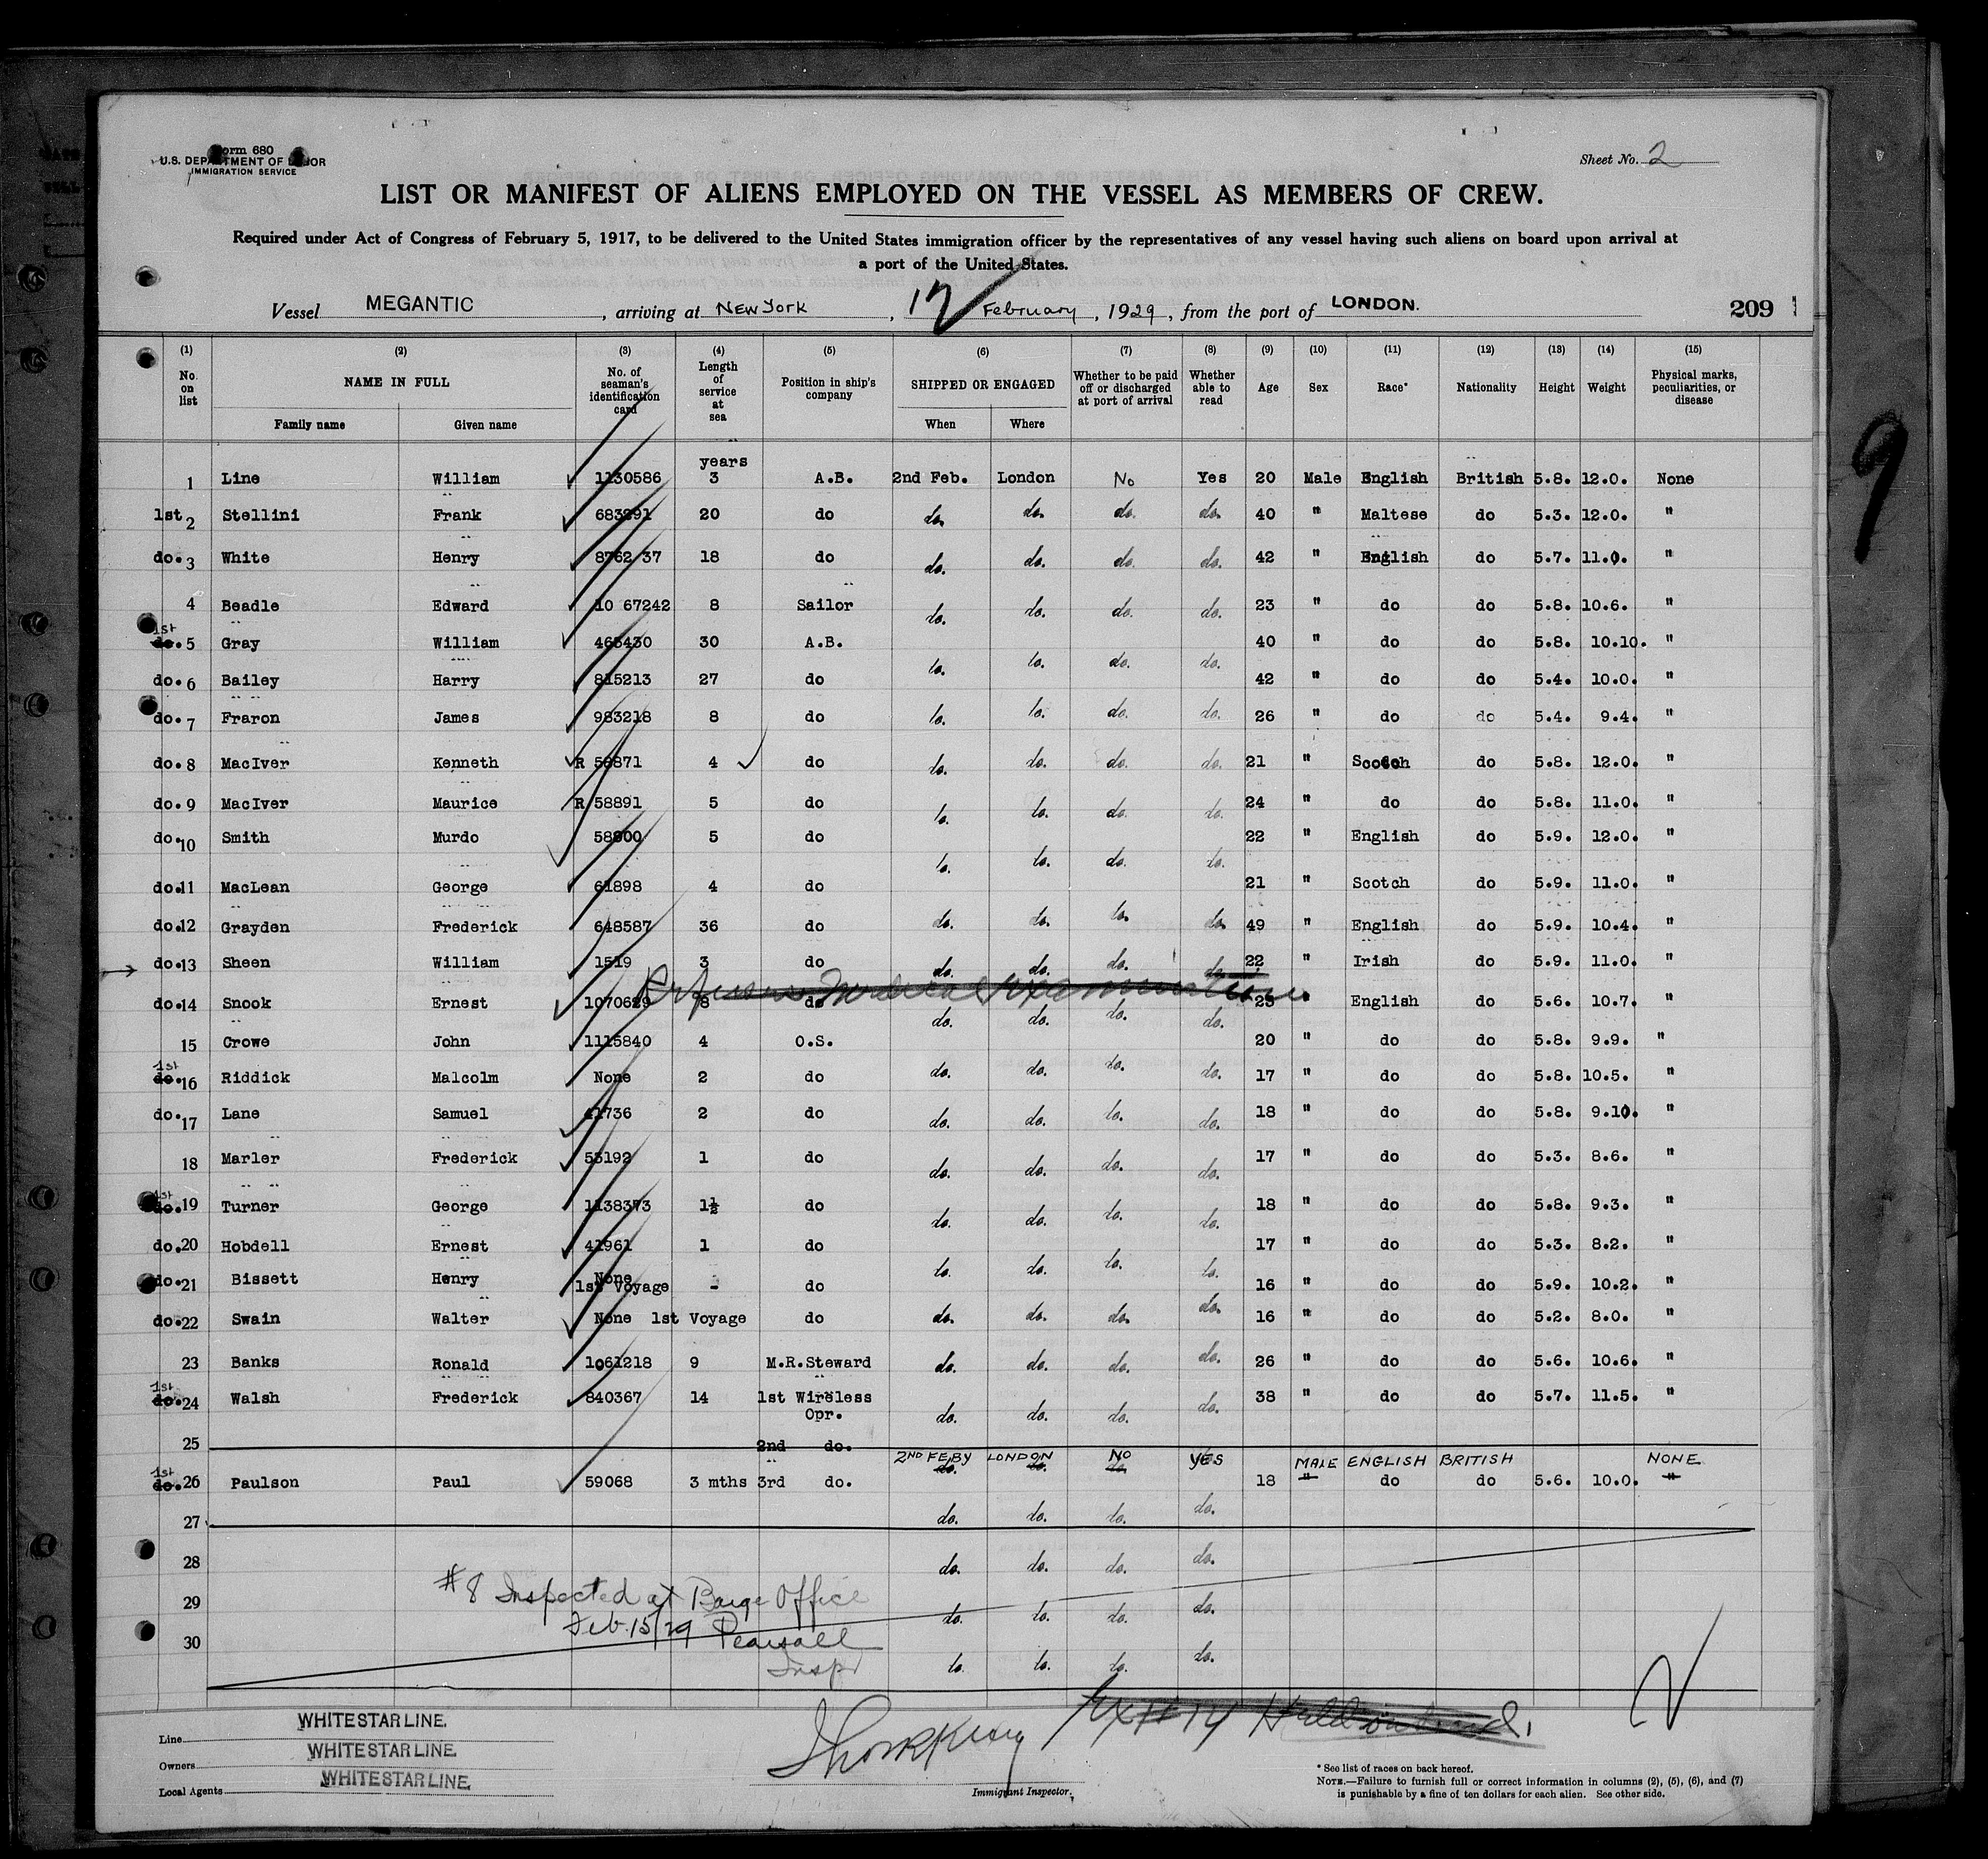 Form 680
U.S. DEPARTMENT OF LABOR
IMMIGRATION SERVICE
Sheet No. 2
LIST OR MANIFEST OF ALIENS EMPLOYED ON THE VESSEL AS MEMBERS OF CREW.
Required under Act of Congress of February 5, 1917, to be delivered to the United States immigration officer by the representatives of any vessel having such aliens on board upon arrival at
a port of the United States.
Vessel MEGANTIC, arriving at NEW YORK, 12 February, 1929, from the port of LONDON. 209
(1) (2) (3) (4) (5) (6) (7) (8) (9) (10) (11) (12) (13) (14) (15)
No. on list NAME IN FULL Family name Given name No. of seaman's identification card Length of service at sea Position in ship's company SHIPPED OR ENGAGED When Where Whether to be paid off or discharged at port of arrival Whether able to read Age Sex Race* Nationality Height Weight Physical marks, peculiarities, or disease
years
1 Line William 1130586 3 A.B. 2nd Feb. London No Yes 20 Male English British 5.8. 12.0. None
1st 2 Stellini Frank 683291 20 do do. do. do. do. 40 " Maltese do 5.3. 12.0. "
do. 3 White Henry 8762 37 18 do do. do. do. do. 42 " English do 5.7. 11.0. "
4 Beadle Edward 10 67242 8 Sailor do. do. do. do. 23 " do do 5.8. 10.6. "
1st
do. 5 Gray William 465430 30 A.B. do. do. do. do. 40 " do do 5.8. 10.10. "
do. 6 Bailey Harry 815213 27 do do. do. do. do. 42 " do do 5.4. 10.0. "
do. 7 Fraron James 983218 8 do do. do. do. do. 26 " do do 5.4. 9.4. "
do. 8 MacIver Kenneth R 58871 4 do do. do. do. do. 21 " Scotch do 5.8. 12.0. "
do. 9 MacIver Maurice R 58891 5 do do. do. do. do. 24 " do do 5.8. 11.0. "
do. 10 Smith Murdo 58800 5 do do. do. do. do. 22 " English do 5.9. 12.0. "
do. 11 MacLean George 61898 4 do 21 " Scotch do 5.9. 11.0. "
do. 12 Grayden Frederick 648587 36 do do. do. do. do. 49 " English do 5.9. 10.4. "
do. 13 Sheen William 1519 3 do do. do. do. do. 22 " Irish do 5.9. 11.0. "
Refuses Medical Examination
do. 14 Snook Ernest 1070629 8 do do. do. do. do. 23 " English do 5.6. 10.7. "
15 Crowe John 1115840 4 O.S. 20 " do do 5.8. 9.9. "
1st
do. 16 Riddick Malcolm None 2 do do. do. do. do. 17 " do do 5.8. 10.5. "
do. 17 Lane Samuel 41736 2 do do. do. do. do. 18 " do do 5.8. 9.10. "
18 Marler Frederick 55192 1 do do. do. do. do. 17 " do do 5.3. 8.6. "
1st
do. 19 Turner George 1138373 1½ do do. do. do. do. 18 " do do 5.8. 9.3. "
do. 20 Hobdell Ernest 41961 1 do 17 " do do 5.3. 8.2. "
do. 21 Bissett Henry None 1st Voyage - do do. do. do. do. 16 " do do 5.9. 10.2. "
do. 22 Swain Walter None 1st Voyage do do. do. do. do. 16 " do do 5.2. 8.0. "
23 Banks Ronald 1061218 9 M.R.Steward do. do. do. do. 26 " do do 5.6. 10.6. "
1st
do. 24 Walsh Frederick 840367 14 1st Wireless Opr. do. do. do. do. 38 " do do 5.7. 11.5. "
25 2nd do.
2ND FEBY LONDON NO YES MALE ENGLISH BRITISH NONE
1st
do. 26 Paulson Paul 59068 3 mths 3rd do. do. do. do. 18 " do do 5.6. 10.0. "
27 do. do. do. do.
28 do. do. do. do.
#8 Inspected at Barge Office
29 do. do. do. do.
Feb. 15/29 Pearsall
30 do. do. do. do.
Inspr
Line WHITE STAR LINE.
Owners WHITE STAR LINE.
Local Agents WHITE STAR LINE.
Ex # 14 Held on board.
Immigrant Inspector.
* See list of races on back hereof.
NOTE.—Failure to furnish full or correct information in columns (2), (5), (6), and (7)
is punishable by a fine of ten dollars for each alien. See other side.
9